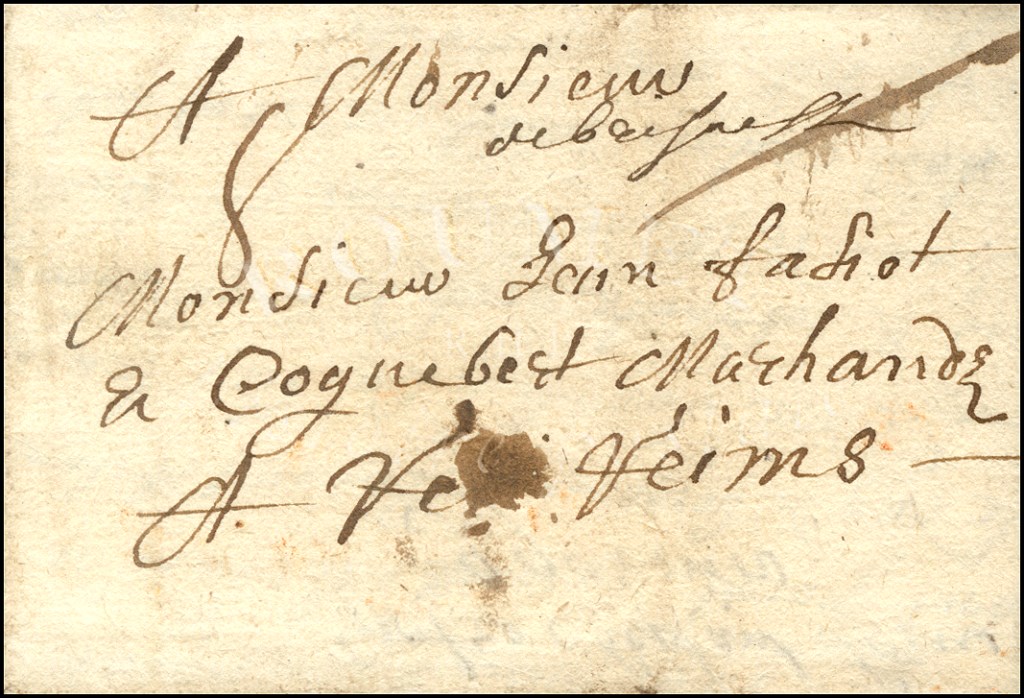 A Monsieur
de bruxelle
Monsieur Jean fadiot
et Coquebert Marchands
A Re Reims